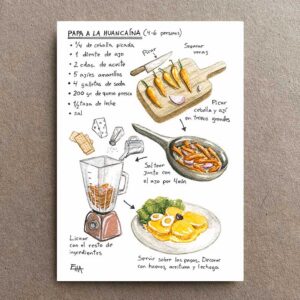 PAPA A LA HUANCAÍNA (4-6 personas)
• ¼ de cebolla picada
• 1 diente de ajo
• 2 cdas. de aceite
• 5 ajíes amarillos
• 4 galletas de soda
• 200 gr. de queso fresco
• ½ taza de leche
• sal
Picar
Sacarar
venas
Picar
cebolla y ají
en trozos grandes
Saltear
junto con
el ajo por 4min
Licuar
con el resto de
ingredientes
Servir sobre las papas. Decorar
con huevos, aceituna y lechuga.